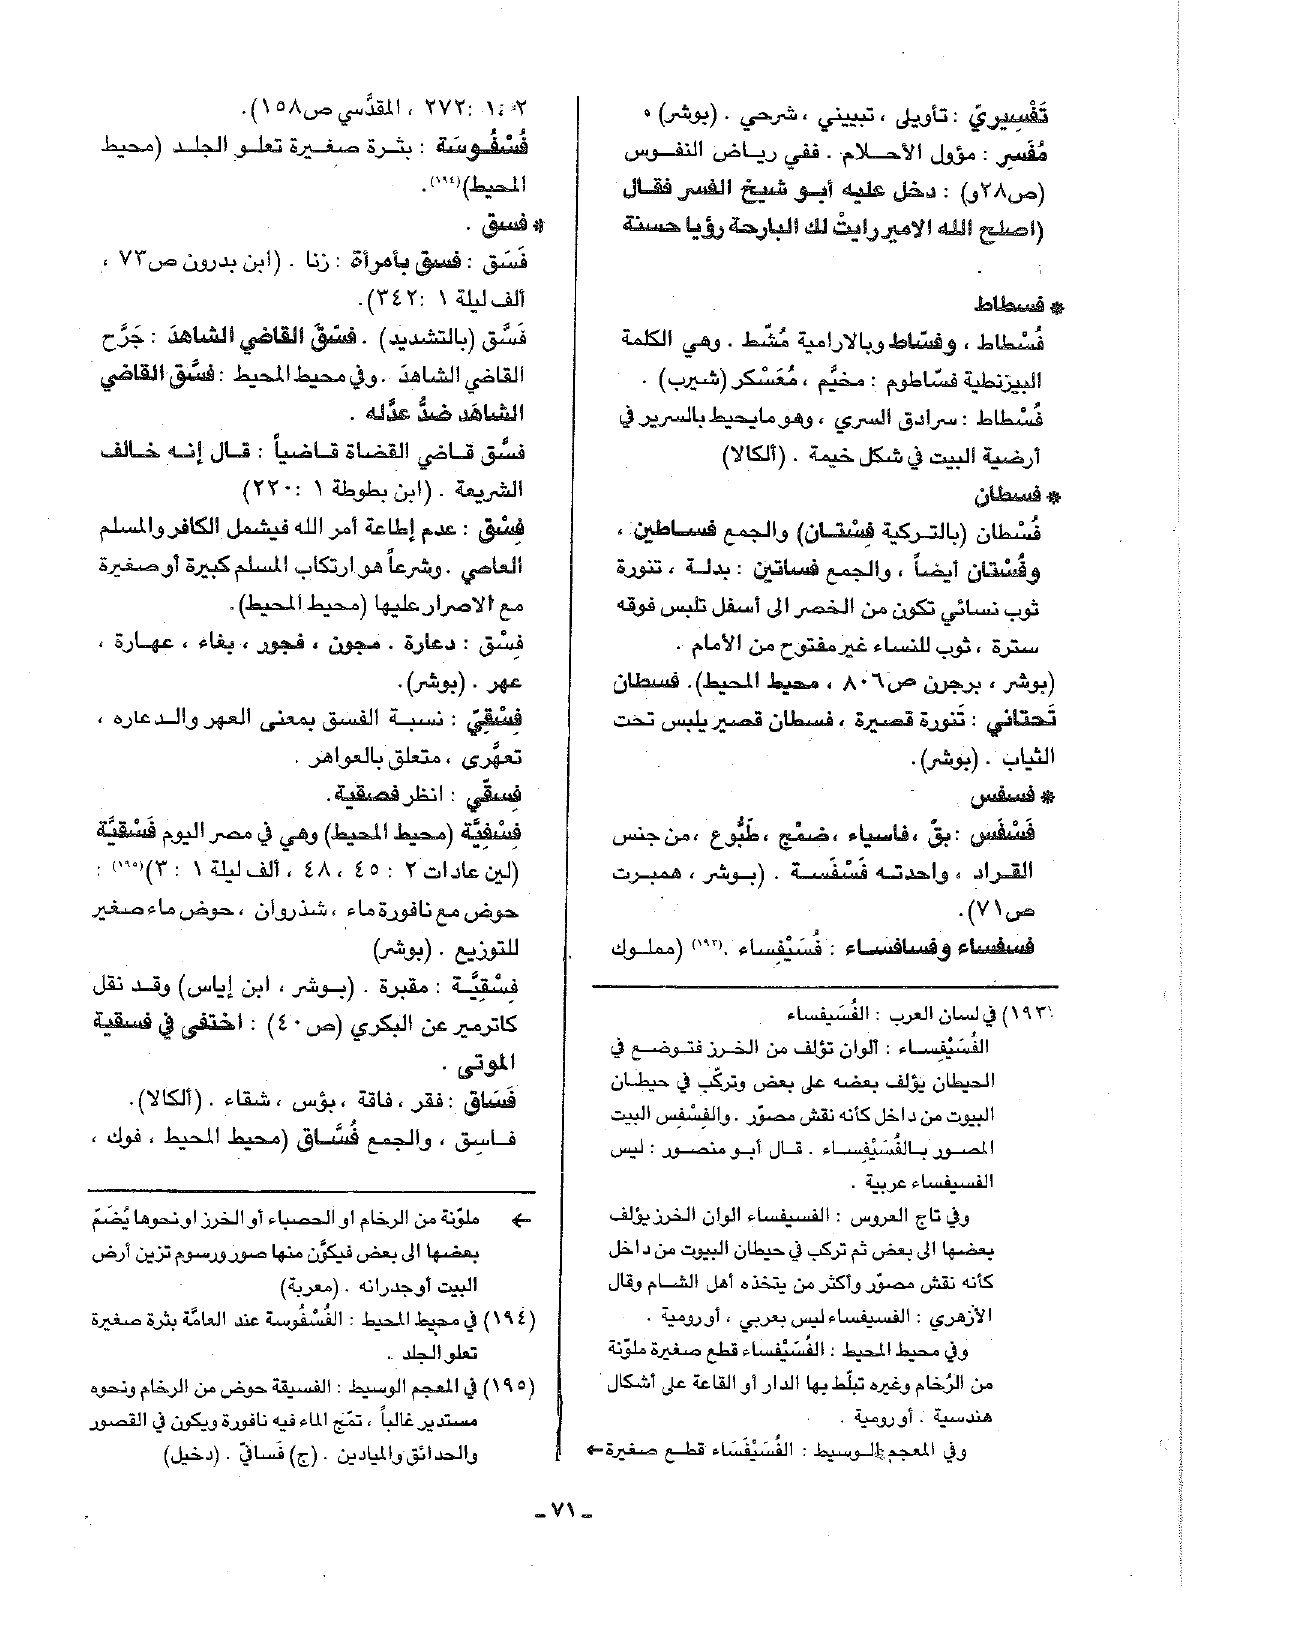 تَفْسِيريّ : تأويلى ، تبييني ، شرحي . (بوشر) ه
مُفَسر : مؤول الأحلام . ففي رياض النفوس
(ص٢٨و) : دخل عليه أبو شيخ الفسر فقال
(اصلح الله الامير رايتُ لك البارحة رؤيا حسنة
* فسطاط
فُسْطاط ، وفسّاط وبالارامية مُشّط . وهي الكلمة
البيزنطية فسّاطوم : مخيَّم ، مُعَسْكر (شيرب) .
فُسْطاط : سرادق السري ، وهو مايحيط بالسرير في
أرضية البيت في شكل خيمة . (ألكالا)
* فسطان
فُسْطان (بالتركية فِسْتان) والجمع فساطين ،
وفُسْتان أيضاً ، والجمع فساتين : بدلة ، تنورة
ثوب نسائي تكون من الخصر الى أسفل تلبس فوقه
سترة ، ثوب للنساء غير مفتوح من الأمام .
(بوشر ، برجرن ص٨٠٦ ، محيط المحيط). فسطان
تَحتاني : تَنورة قصيرة ، فسطان قصير يلبس تحت
الثياب . (بوشر).
* فسفس
فَسْفَس : بقّ ، فاسياء ، ضمْج ، طَبُّوع ، من جنس
القراد ، واحدته فَسْفَسة . (بوشر ، همبرت
ص٧١).
فسفساء وفسافساء : فُسَيْفساء .(١٩٣) (مملوك
١٩٣) في لسان العرب : الفُسَيفساء
الفُسَيْفِساء : ألوان تؤلف من الخرز فتوضع في
الحيطان يؤلف بعضه على بعض وتركّب في حيطان
البيوت من داخل كأنه نقش مصوّر . والفسْفس البيت
المصور بالفُسَيْفساء . قال أبو منصور : ليس
الفسيفساء عربية .
وفي تاج العروس : الفسيفساء الوان الخرز يؤلف
بعضها الى بعض ثم تركب في حيطان البيوت من داخل
كأنه نقش مصوّر وأكثر من يتخذه أهل الشام وقال
الأزهري : الفسيفساء ليس بعربي ، أو رومية .
وفي محيط المحيط : الفُسَيْفساء قطع صغيرة ملوّنة
من الرُخام وغيره تبلّط بها الدار أو القاعة على أشكال
هندسية . أو رومية .
وفي المعجم الوسيط : الفُسَيْفَسَاء قطع صغيرة ←
١،٢ :٢٧٢ ، المقدَّسي ص١٥٨).
فُسْفُوسَة : بثرة صغيرة تعلو الجلد (محيط
المحيط)(١٩٤).
* فسق .
فَسَق : فسق بأمرأة : زنا . (ابن بدرون ص٧٣ ،
ألف ليلة ١ :٣٤٢).
فَسَّق (بالتشديد) . فسّقَ القاضي الشاهدَ : جَرَّح
القاضي الشاهدَ . وفي محيط المحيط : فسَّق القاضي
الشاهَد ضدُّ عدَّله .
فسَّق قاضي القضاة قاضياً : قال إنه خالف
الشريعة . (ابن بطوطة ١ :٢٢٠)
فِسْق : عدم إطاعة أمر الله فيشمل الكافر والمسلم
العاصي . وشرعاً هو ارتكاب المسلم كبيرة أو صغيرة
مع الاصرار عليها (محيط المحيط).
فسْق : دعارة . مجون ، فجور ، بغاء ، عهارة ،
عهر . (بوشر).
فِسْقيّ : نسبة الفسق بمعنى العهر والدعاره ،
تعهَّرى ، متعلق بالعواهر .
فِسقّي : انظر فصقية.
فِسْقيَّة (محيط المحيط) وهي في مصر اليوم فَسْقيَّة
(لين عادات ٢ : ٤٥ ، ٤٨ ، ألف ليلة ١ : ٣)(١٩٥) :
حوض مع نافورة ماء ، شذروان ، حوض ماء صغير
للتوزيع . (بوشر)
فِسْقيَّة : مقبرة . (بوشر ، ابن إياس) وقد نقل
كاترمير عن البكري (ص٤٠) : اختفى في فسقية
الموتى .
فَسَاق : فقر ، فاقة ، بؤس ، شقاء . (ألكالا).
فاسق ، والجمع فُسَّاق (محيط المحيط ، فوك ،
← ملوّنة من الرخام او الحصباء أو الخرز او نحوها يُضَمّ
بعضها الى بعض فيكوَّن منها صور ورسوم تزين أرض
البيت أو جدرانه . (معربة)
(١٩٤) في محيط المحيط : الفُسْفُوسة عند العامَّة بثرة صغيرة
تعلو الجلد .
(١٩٥) في المعجم الوسيط : الفسيقة حوض من الرخام ونحوه
مستدير غالباً ، تمّج الماء فيه نافورة ويكون في القصور
والحدائق والميادين . (ج) فَساقيّ . (دخيل)
- ٧١ -